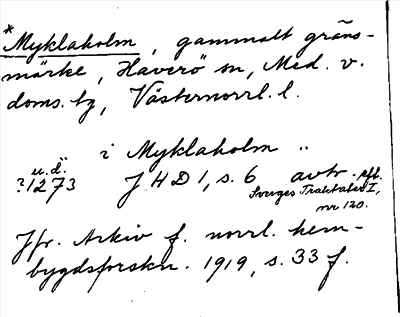 *Myklaholm, gammalt gräns-
märke, Haverö sn, Med. v.
doms. tg, Västernorrl. l.
i Myklaholm "
u.d.
?1273 JHD 1, s. 6 avtr. eft.
Sveriges Traktater I,
nr 120.
Jfr. Arkiv f. norrl. hem-
bygdsforskn. 1919, s. 33 f.